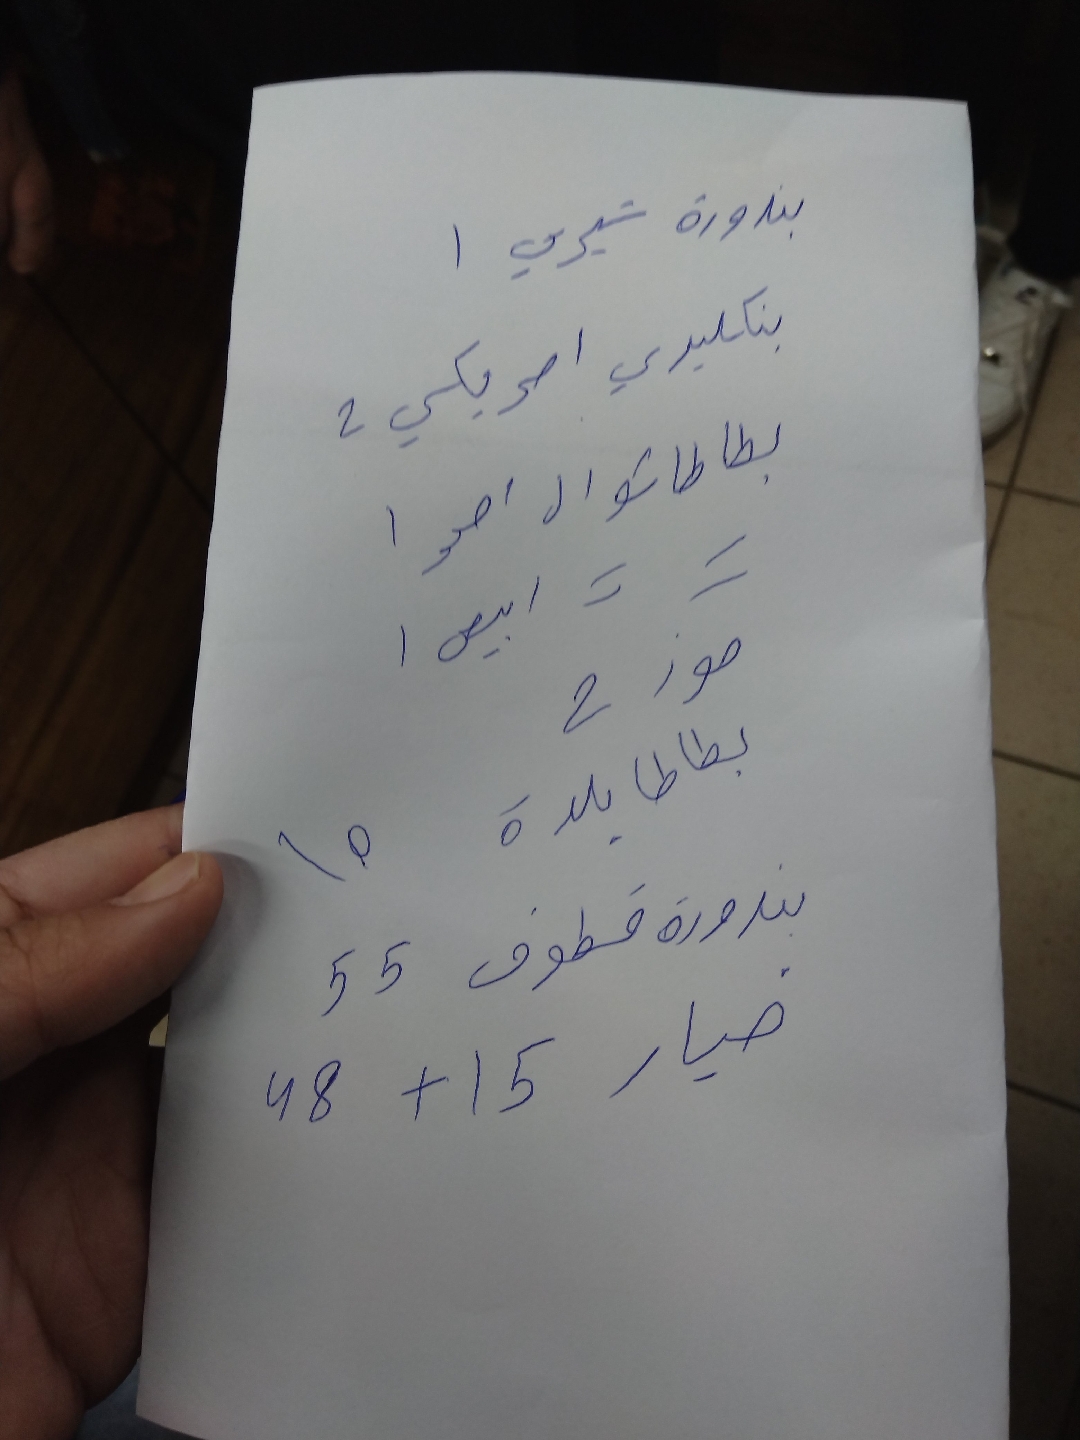 بندورة شيري 1
بنكليري امريكي 2
بطاطا شوال احمر 1
= = ابيض 1
موز 2
بطاطا بلدة ١٥
بندورة قطوف 55
خيار 15 + 48